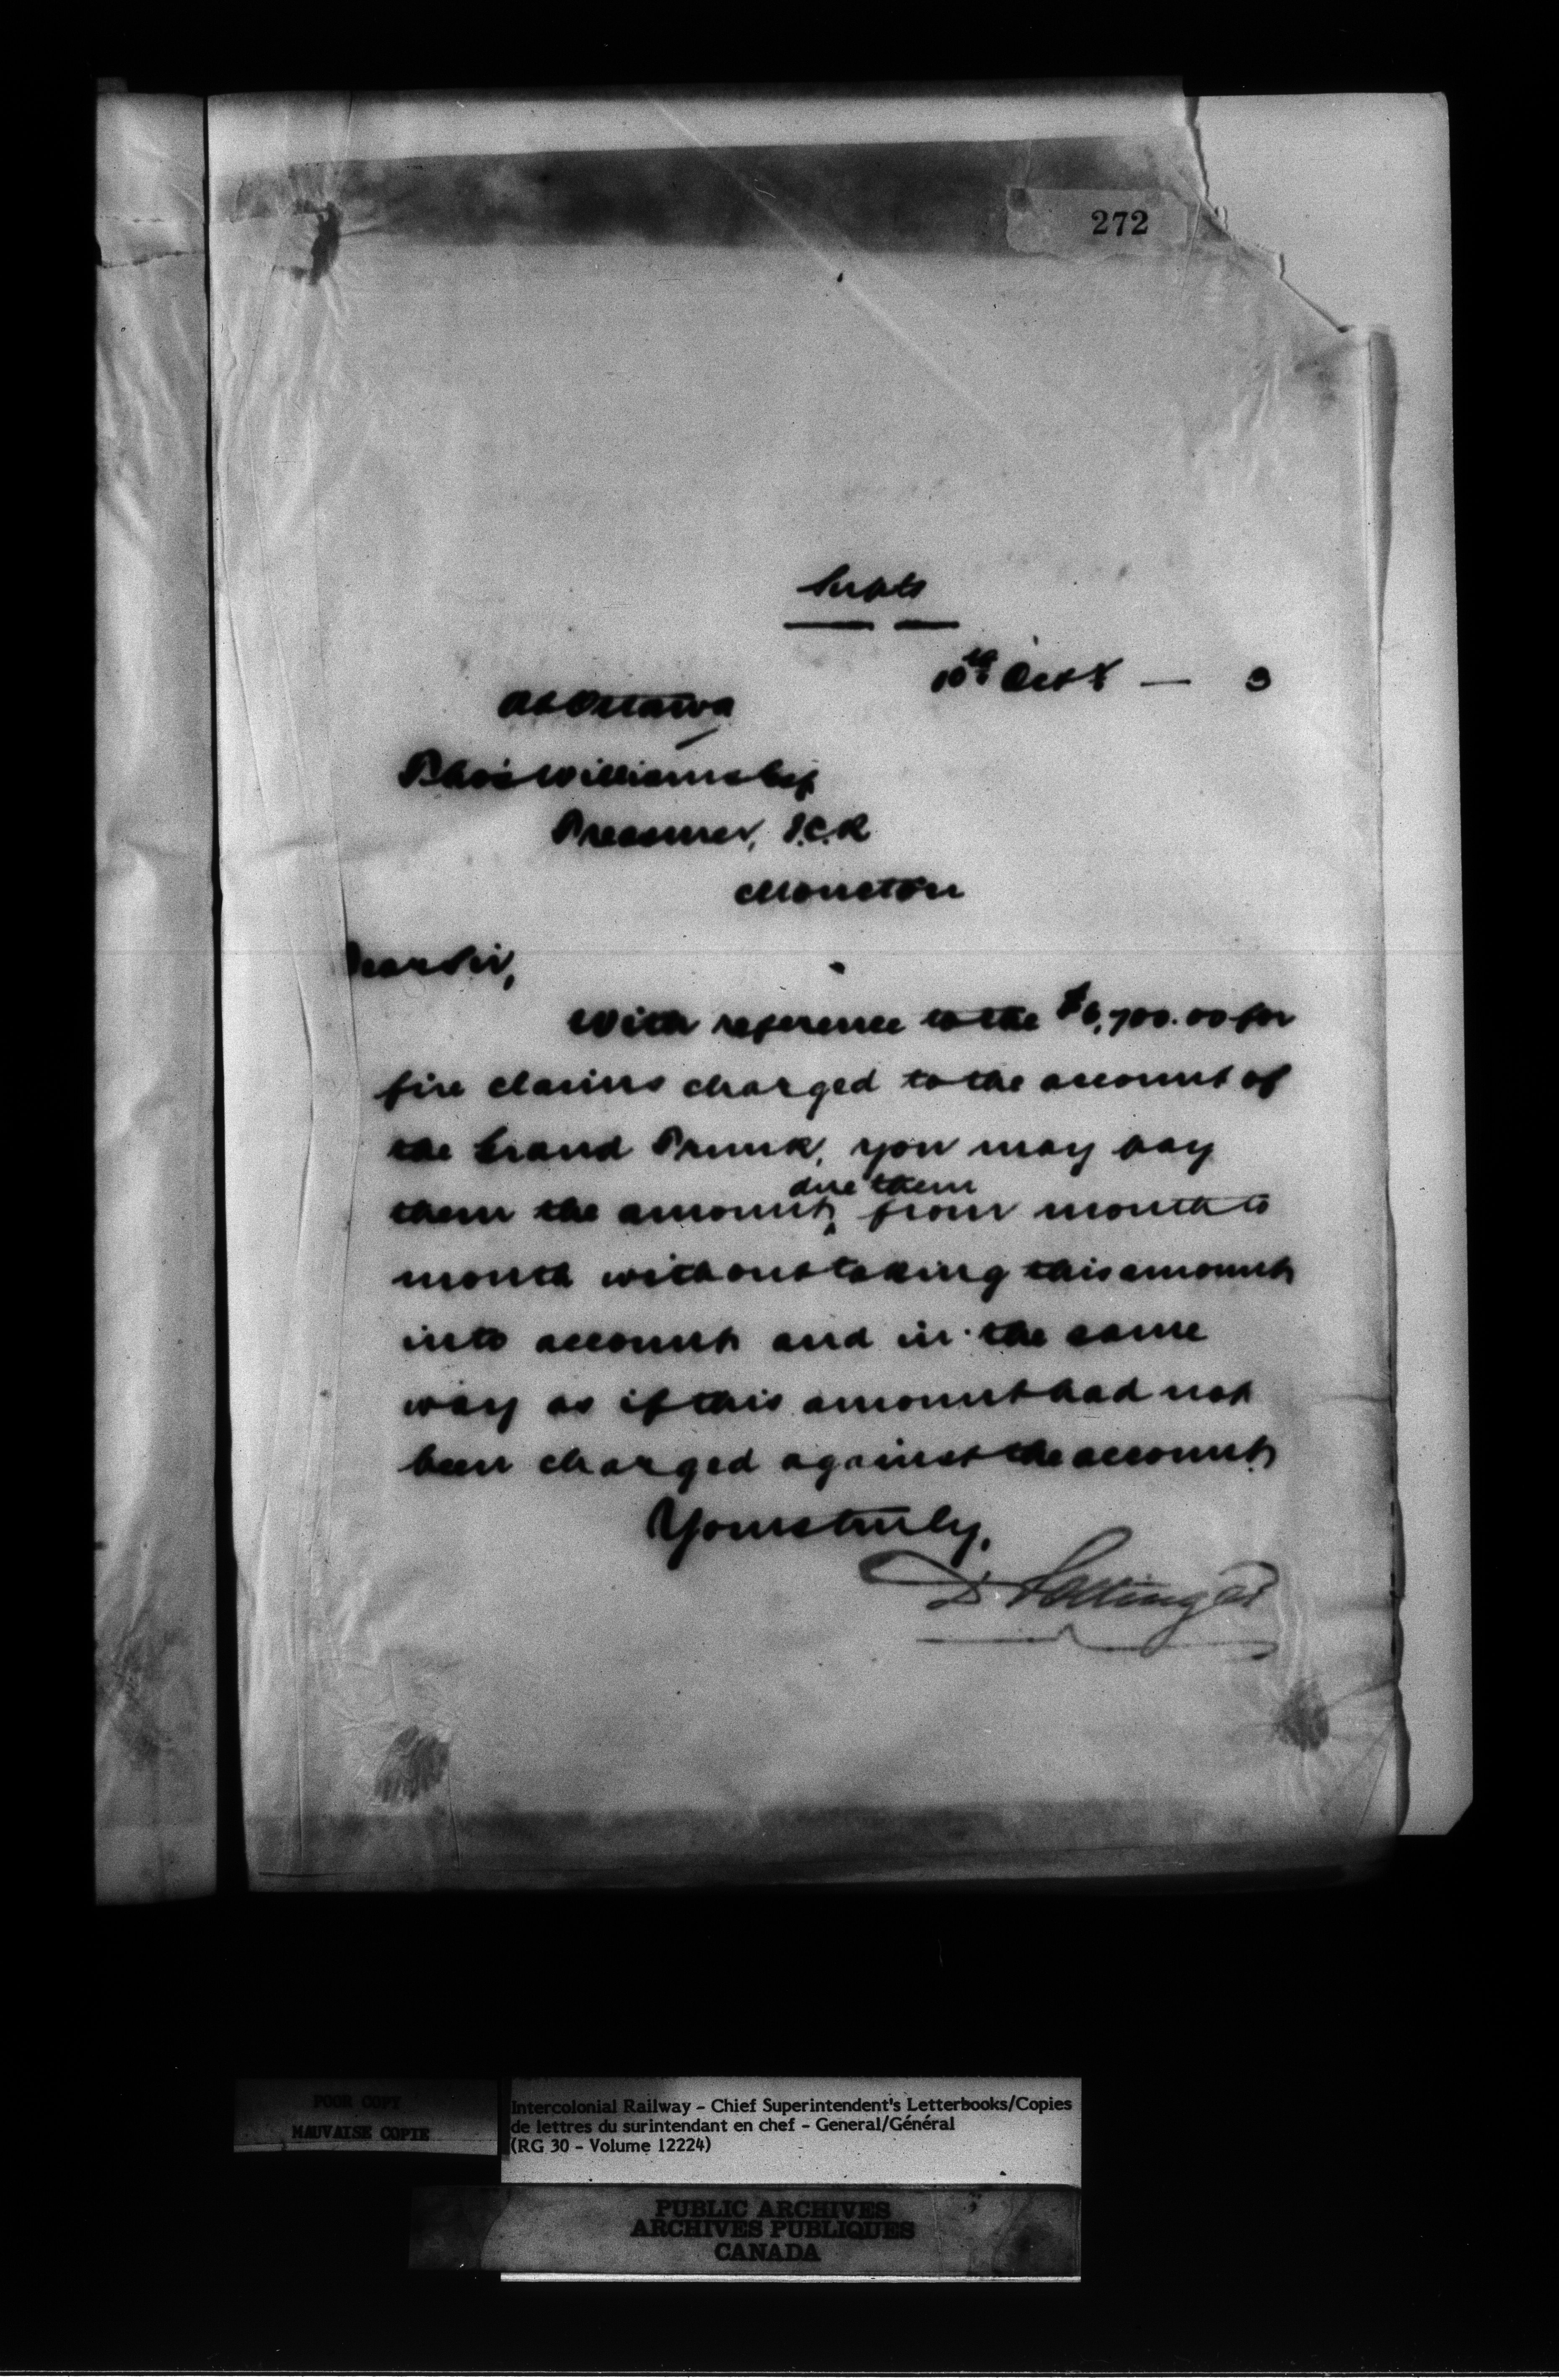 272
Supts
10th Octr — 3
At Ottawa
Thos Williams Esq
Treasurer, I.C.R
Moncton
Dear Sir,
With reference to the $6,700.00 for
fire claims charged to the account of
the Grand Trunk, you may pay
due them
them the amount, from month to
month without taking this amount
into account and in the same
way as if this amount had not
been charged against the account
Yours truly,
D. Pottinger
POOR COPY
MAUVAISE COPIE
Intercolonial Railway – Chief Superintendent's Letterbooks/Copies
de lettres du surintendant en chef – General/Général
(RG 30 – Volume 12224)
PUBLIC ARCHIVES
ARCHIVES PUBLIQUES
CANADA